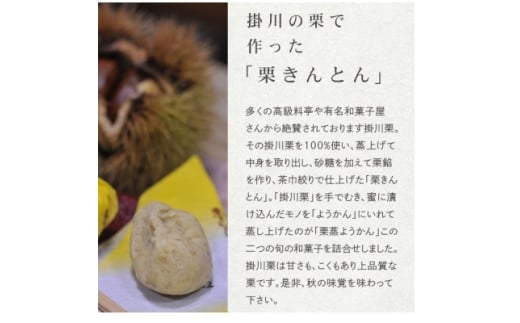 掛川の栗で
作った
「栗きんとん」
多くの高級料亭や有名和菓子屋
さんから絶賛されております掛川栗。
その掛川栗を100%使い、蒸上げて
中身を取り出し、砂糖を加えて栗餡
を作り、茶巾絞りで仕上げた「栗きん
とん」。「掛川栗」を手でむき、蜜に漬
け込んだモノを「ようかん」にいれて
蒸し上げたのが「栗蒸ようかん」この
二つの旬の和菓子を詰合せしました。
掛川栗は甘さも、こくもあり上品質な
栗です。是非、秋の味覚を味わって
下さい。